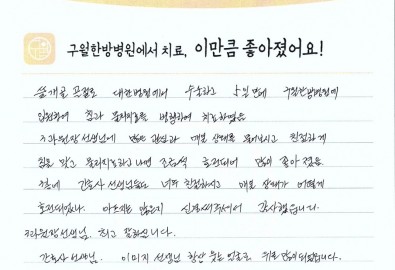 구월한방병원에서 치료, 이만큼 좋아졌어요!
쓸개골 골절로 대한병원에서 수술하고 5일만에 구월한방병원에
입원하여 침과 물리치료를 병행하여 치료하였음
원장선생님에 많은 관심과 매일 상태를 물어보시고 친절하게
침을 맞고 물리치료하고나면 조금씩 호전되어 많이 좋아 졌음
간호사 선생님들도 너무 친절하시고 매일 상태가 어떻게
호전되었나. 아프지는 않은지 신경써주셔서 감사했습니다.
원장선생님. 최고 감사합니다.
간호사 선생님. 이미지 선생님 항상 웃는 얼굴로 위로 많이 되었습니다.